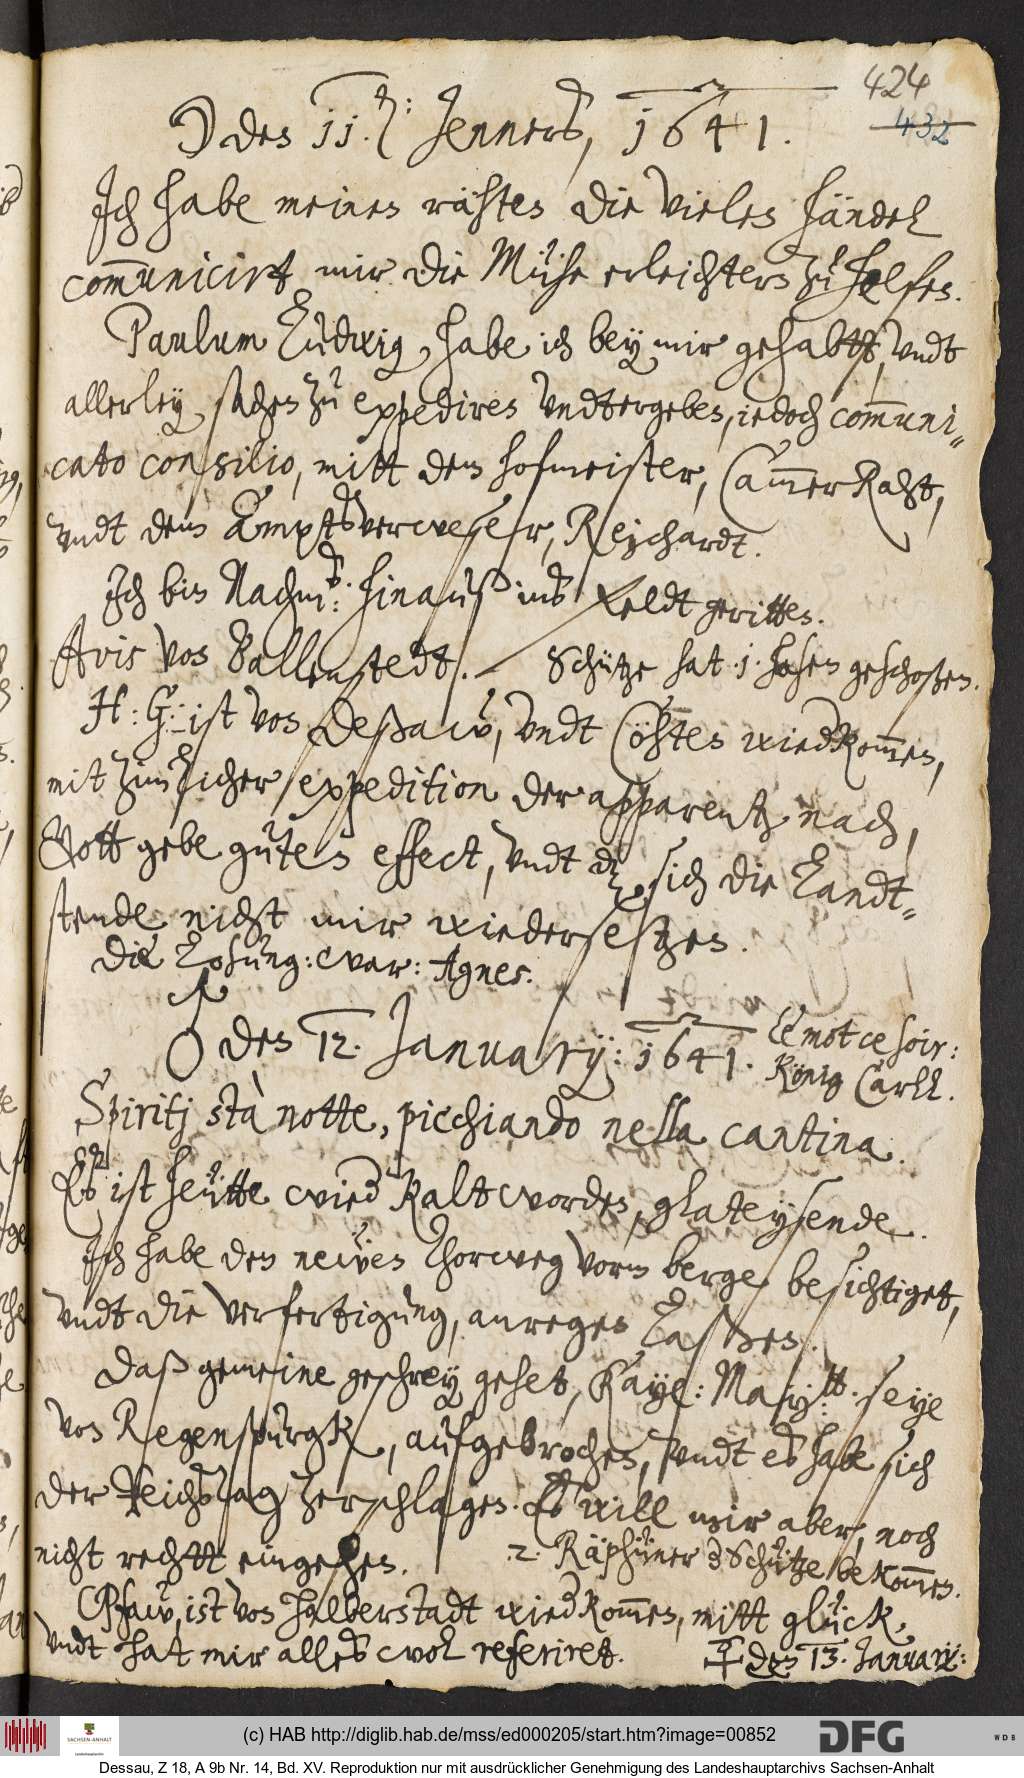 424
432
☽ den 11. t: Jenners, 1641.
Ich habe meinen rähten die vielen händel
com̄unicirt mir die Mühe erleichtern zu helfen.
Paulum Ludwig, habe ich bey mir gehabtt, undt
allerley sachen zu expediren undtergeben, iedoch com̄uni-
cato consilio, mitt dem hofmeister, Cam̄erRaht,
undt dem Ampts verweser, Reichardt.
Ich bin Nachm: hinauß ins feldt geritten.
Avis von Ballenstedt. Schütze hat .1. hasen geschoßen.
H: G: ist von Deßaw, undt Cöhten wiedkom̄en,
mit zimlicher expedition der apparentz nach,
Gott gebe guten effect, undt dz sich die Landt-
stende nicht mir wiedersetzen.
Die Losung: war: Agnes.
♂ den 12. January: 1641. Le mot ce soir:
König Carll.
Spiritj stà notte, picchiando nella cantina.
Es ist heütte wied kaltworden, glateysende.
Ich habe den newen Thorweg vorm berge besichtiget,
undt die verfertigung, anregen laßen.
Daß gemeine geschrey gehet, Kaye: May:tt. seye
von Regenspurgk, aufgebrochen, undt es habe sich
der Reichstag zerschlagen. Es will mir aber, noch
nicht rechtt eingehen. .2. Räphüner Schütze bekom̄en.
Pfaw, ist von Halberstadt wiedkom̄en, mitt glück,
undt hat mir alles wol referiret. ☿ den 13. January:
(c) HAB http://diglib.hab.de/mss/ed000205/start.htm?image=00852
SACHSEN-ANHALT
DFG
WDB
Dessau, Z 18, A 9b Nr. 14, Bd. XV. Reproduktion nur mit ausdrücklicher Genehmigung des Landeshauptarchivs Sachsen-Anhalt